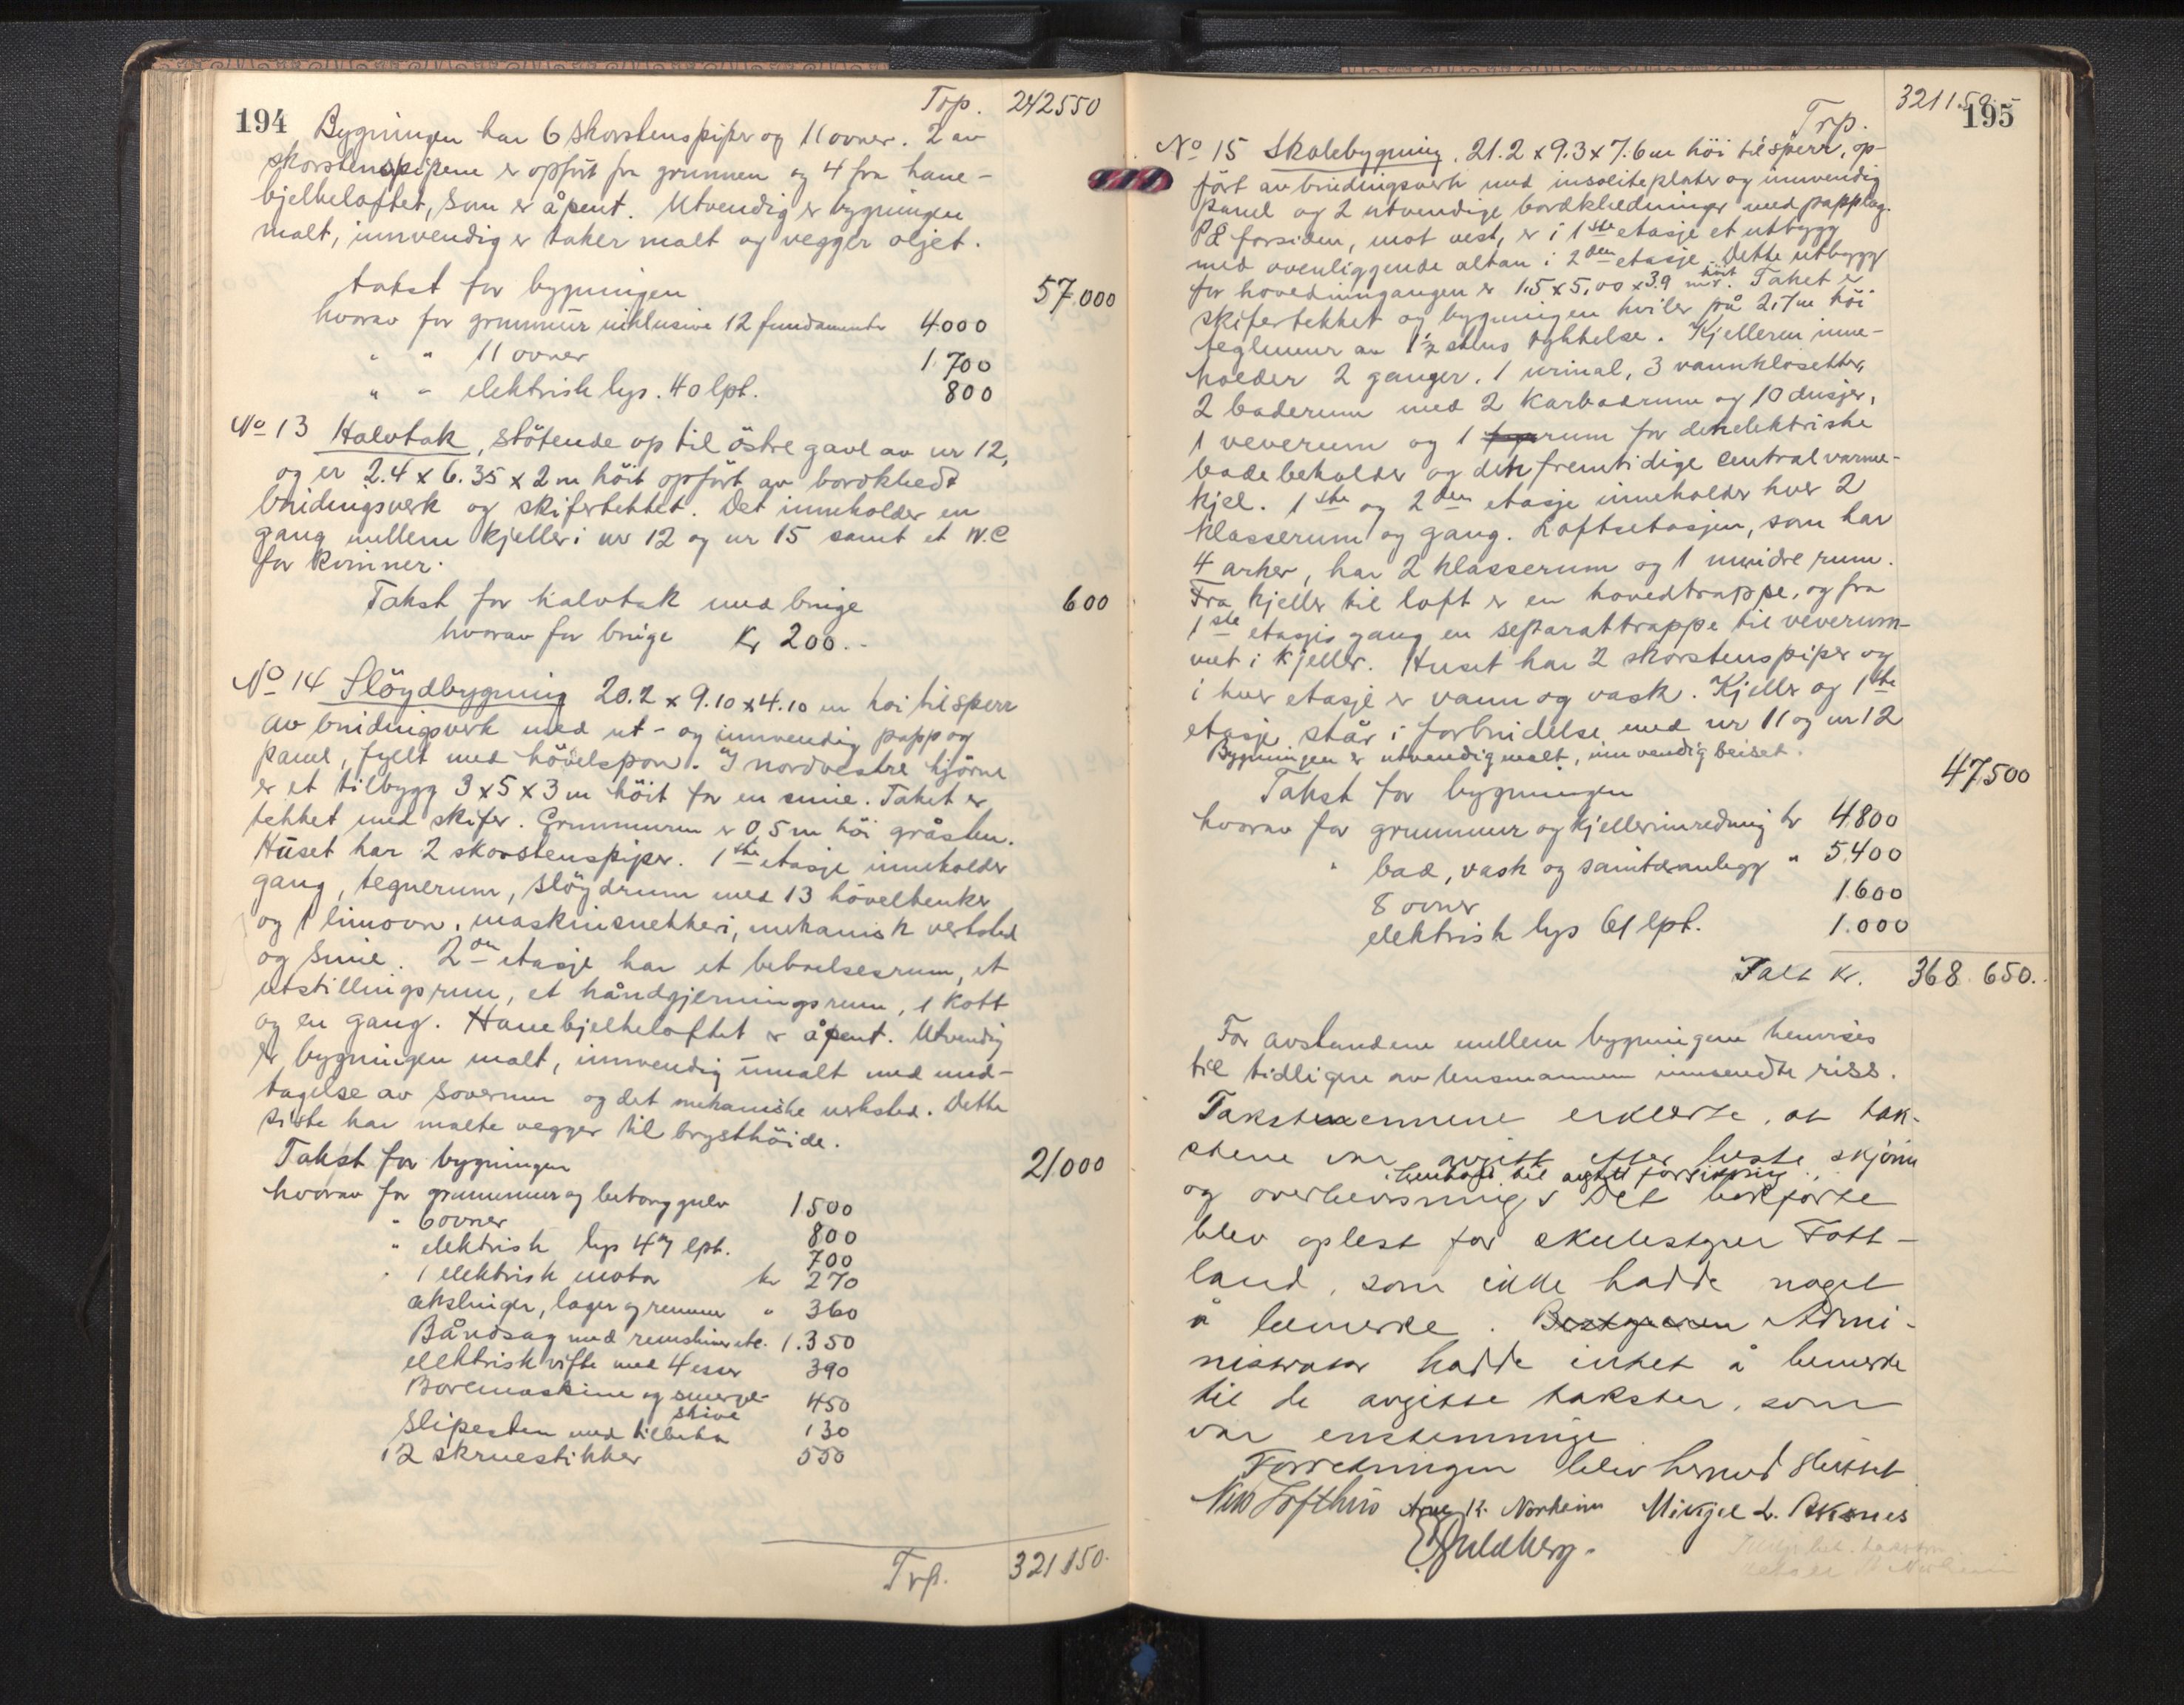 194
Trp. 242550
Bygningen har 6 skorstenspiper og 11 ovner. 2 av
skorstenspipene er opført fra grunnen og 4 fra hane-
bjelkeloftet, som er åpent. Utvendig er bygningen
malt, innvendig er taker malt og vegger oljet.
takst for bygningen 57.000
hvorav for grunnmur inklusive 12 fundamenter 4000
" " 11 ovner 1.700
" " elektrisk lys. 40 lpt. 800
No 13 Halvtak, støtende op til östre gavl av nr 12,
og er 2.4 x 6.35 x 2 m höit opfört av bordklædt
bindingsverk og skifertekket. Det inneholder en
gang mellem kjeller i nr 12 og nr 15 samt et W.C
for kvinner.
Takst for halvtak med binge 600
hvorav for binge Kr 200..
No 14 Slöydbygning 20.2 x 9.10 x 4.10 m höi til sperr
av bindingsverk med ut- og innvendig papp og
panel, fyllt med hövelspon. I nordvestre hjörne
er et tilbygg 3 x 5 x 3 m höit for en smie. Taket er
tekket med skifer. Grunnmuren er 0,5 m höi gråsten.
Huset har 2 skorstenspiper. 1ste etasje inneholder
gang, tegnerum, slöydrum med 13 hövelbenker
og 1 limovn, maskinsnekkeri, mekanisk verksted
og smie. 2en etasje har et beboelsesrum, et
utstillingsrum, et håndgjerningsrum, 1 kott
og en gang. Hanebjelkeloftet er åpent. Utvendig
er bygningen malt, innvendig umalt med und-
tagelse av soverum og det mekaniske verksted. Dette
siste har malte vegger til brysthöide.
Takst for bygningen 21000
hvorav for grunnmur og betonggulv 1.500
" 6 ovner 800
" elektrisk lys 47 lpt. 700
" 1 elektrisk motor kr 270
akslinger, lager og remmer " 360
Båndsag med remskiver etc. 1.350
elektrisk vifte med 4 esser 390
Boremaskine og smergel-
skive 450
Slipesten med tilbehør 130
12 skruestikker 550
Trp. 321150.
195
Trp. 321150.-
No 15 Skolebygning. 21.2 x 9.3 x 7.6 m höi til sperr, op-
fört av bindingsverk med insoliteplater og innvendig
panel og 2 utvendige bordklædninger med papplag.
På forsiden, mot vest, er i 1ste etasje et utbygg
med ovenliggende altan i 2den etasje. Dette utbygg
for hovedinngangen er 1.5 x 5,00 x 3.9 mtr. höit. Taket er
skifertekket og bygningen hviler på 2.7 m höi
teglmur av 1½ stens tykkelse. Kjelleren inne-
holder 2 ganger, 1 urinal, 3 vannklosetter,
2 baderum med 2 karbadrum og 10 dusjer,
1 veverum og 1 rum for den elektriske
badebeholder og den fremtidige centralvarme-
kjel. 1ste og 2den etasje inneholder hver 2
klasserum og gang. Loftsetasjen, som har
4 arker, har 2 klasserum og 1 mindre rum.
Fra kjeller til loft er en hovedtrappe, og fra
1ste etasjes gang en separattrappe til veverum-
met i kjeller. Huset har 2 skorstenspiper og
i hver etasje er vann og vask. Kjeller og 1ste
etasje står i forbindelse med nr 11 og nr 12
Bygningen er utvendig malt, innvendig beiset.
Takst for bygningen 47500
hvorav for grunnmur og kjellerinredning kr 4.800
" bad, vask og sanitæranlegg " 5.400
8 ovner 1.600
elektrisk lys 61 lpt. 1.000
Talt Kr. 368.650..
For avstandene mellem bygningene henvises
til tidligere av lensmannen innsendte riss.
Takstmennene erklærte, at tak-
stene var avgitt efter beste skjönn
og overbevisning i henhold til avgitt forsikring. Det bokförte
blev oplest for skulestyrer Fott-
land, som ikke hadde noget
å bemerke. Bestyreren Admi-
nistrator hadde intet å bemerke
til de avgitte takster, som
var enstemmige
Forretningen blev hermed sluttet
Nils Lofthus Arne K. Norheim Mikjel L. Aksnes
E Guldberg.